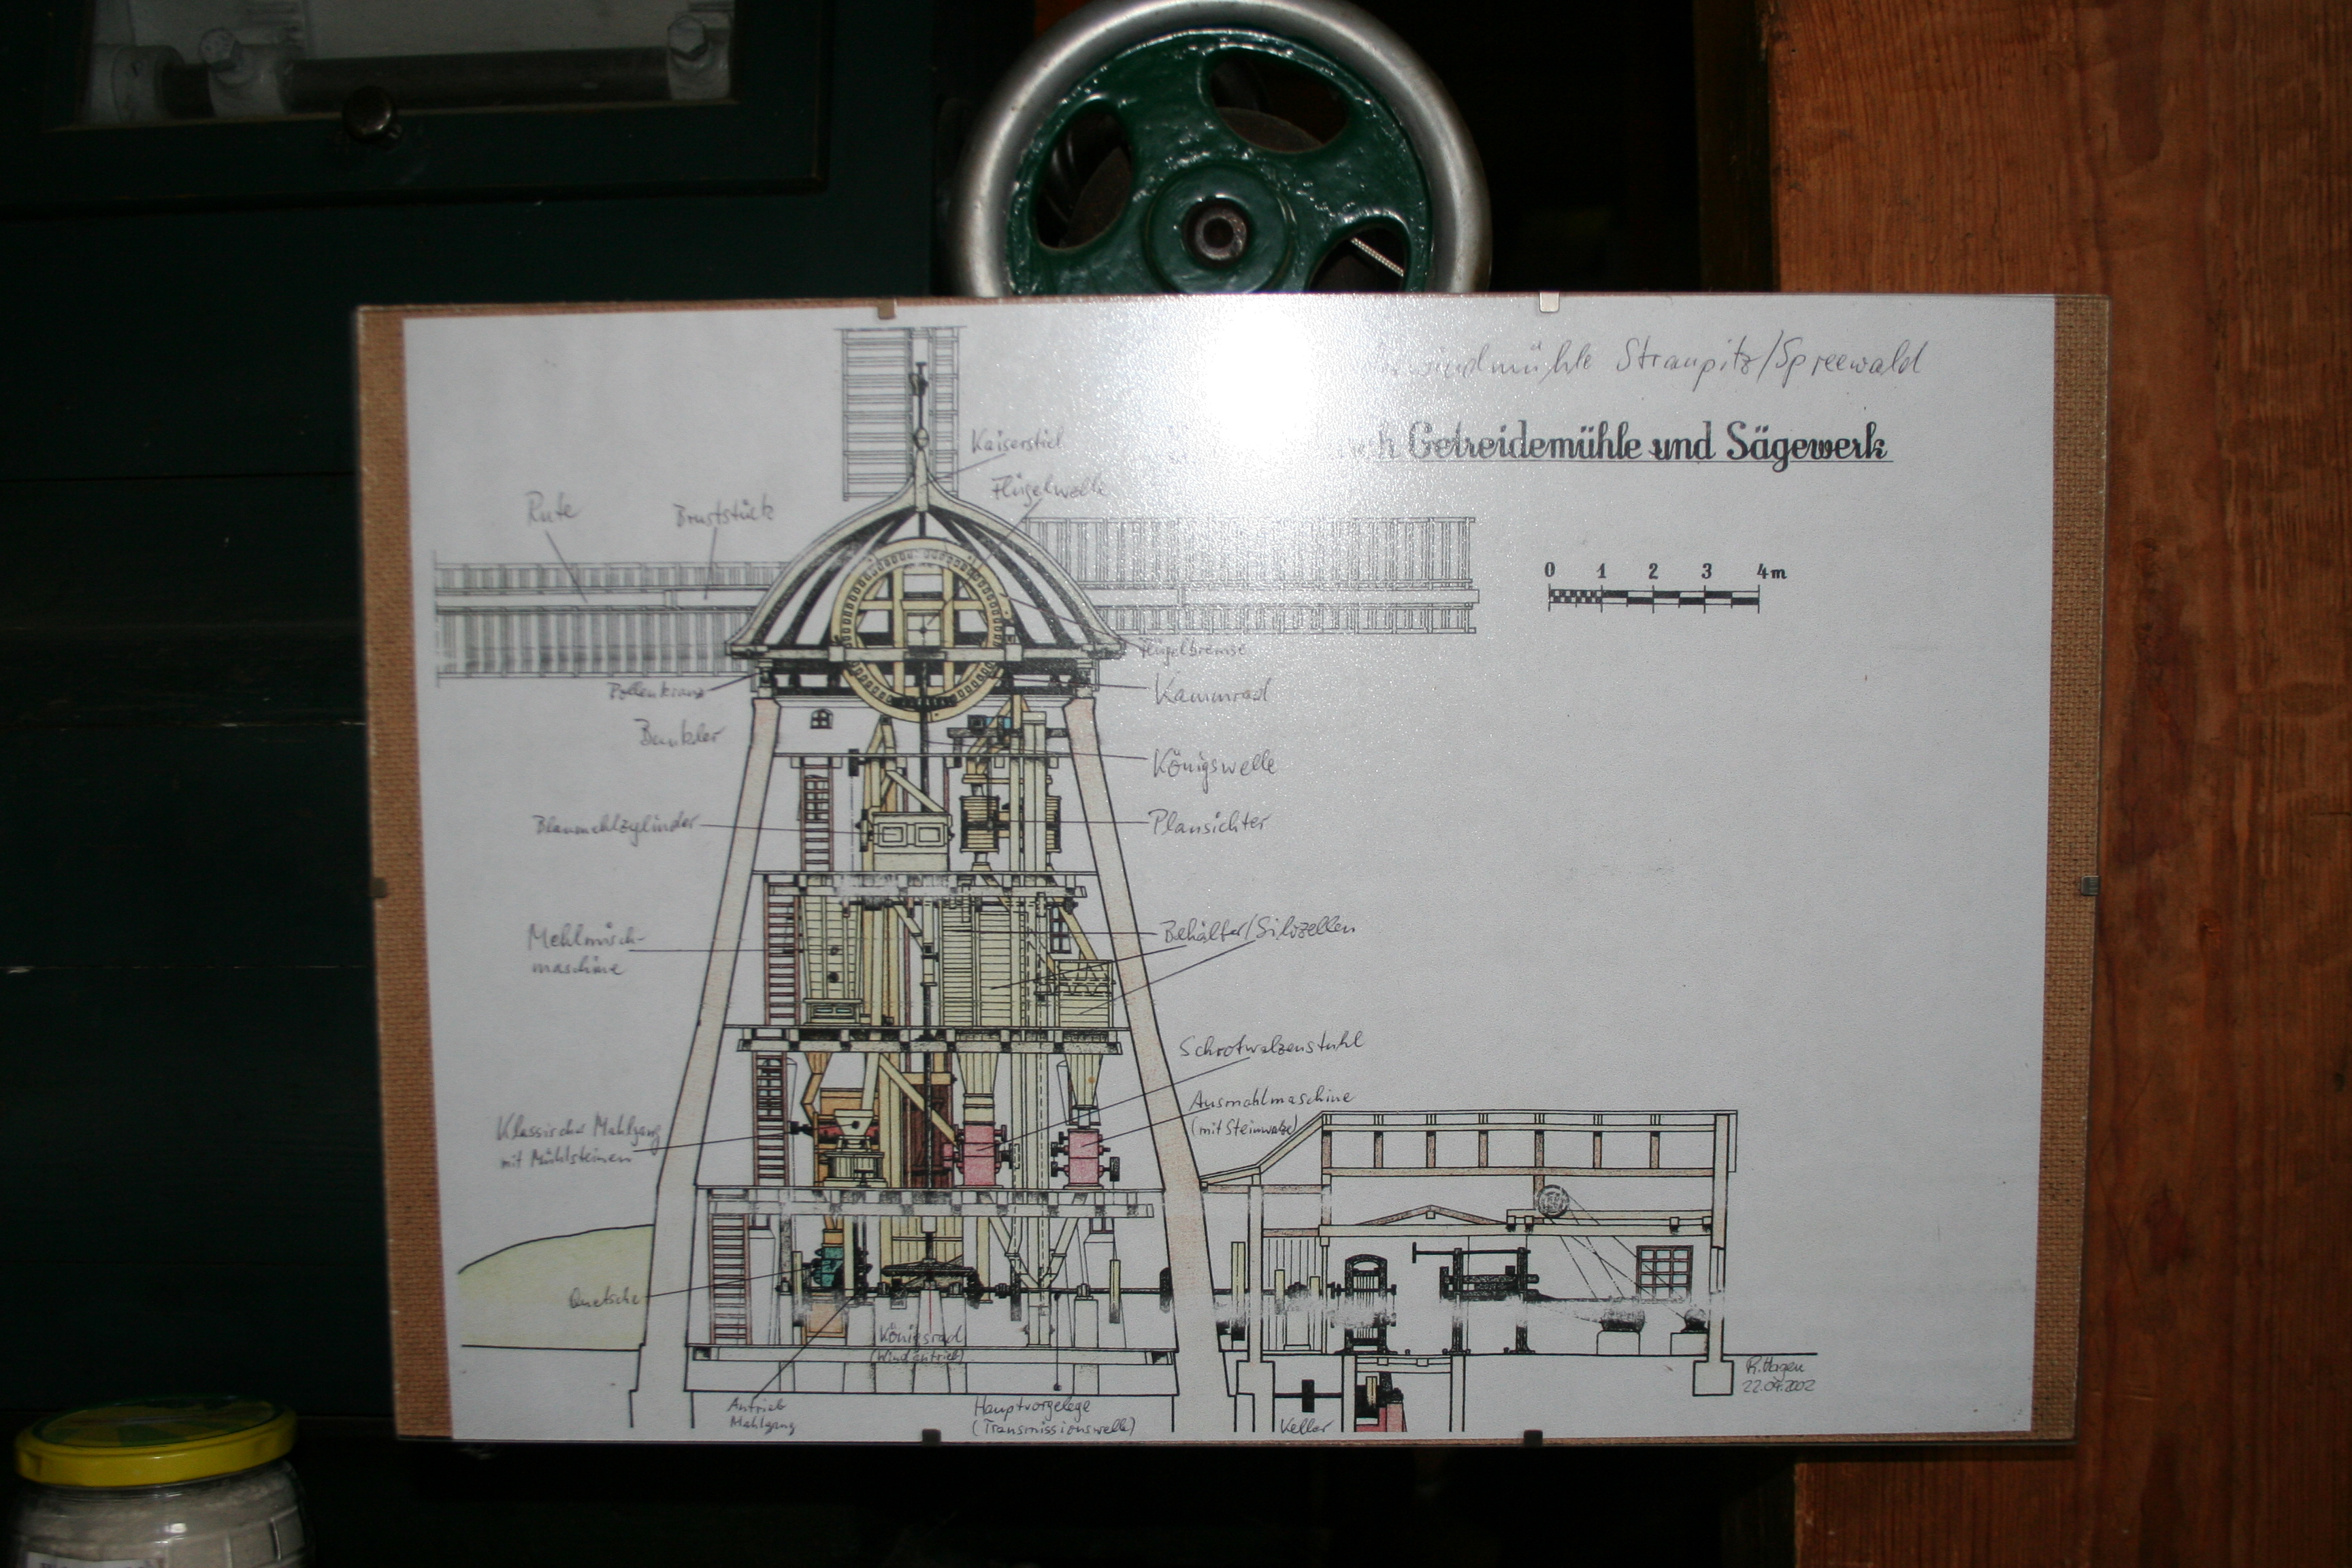 windmühle Straupitz/Spreewald
Getreidemühle und Sägewerk
0 1 2 3 4m
Kaiserstiel
Flügelwelle
Rute
Bruststück
Flügelbremse
Rollenkranz
Kammrad
Bunkler
Königswelle
Blaumehlzylinder
Plansichter
Mehlmisch-
maschine
Behälter/Silozellen
Schrotwalzenstuhl
Ausmahlmaschine
(mit Steinwalze)
Klassischer Mahlgang
mit Mühlsteinen
Quetsche
Königsrad
(Windantrieb)
Antrieb
Mahlgang
Hauptvorgelege
(Transmissionswelle)
Keller
R. Hagen